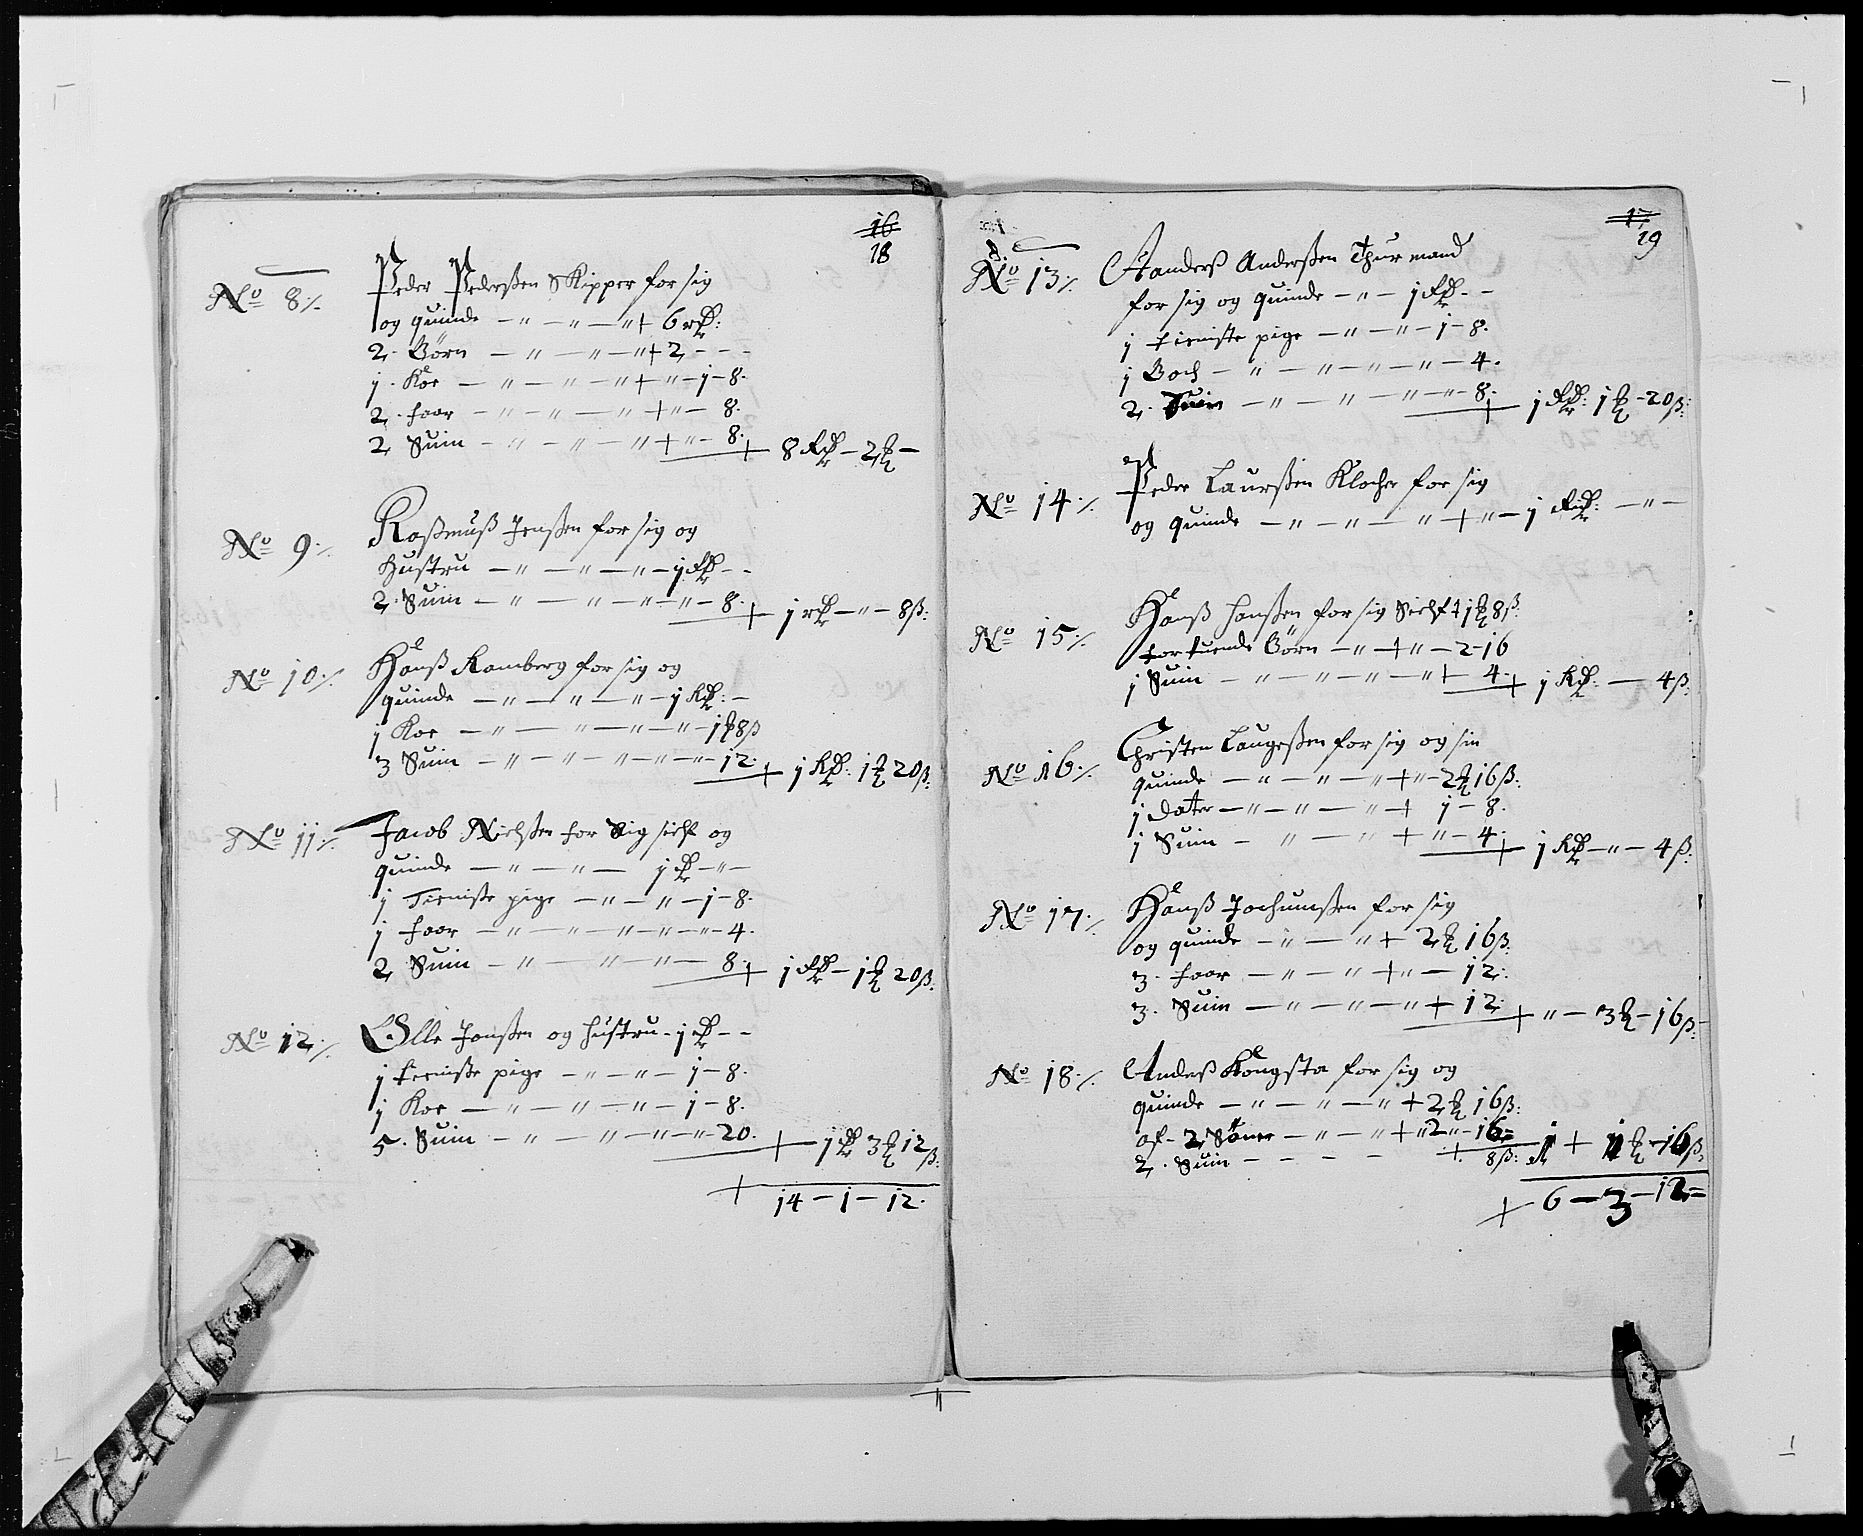 16
18
No 8 ⁒ Peder Pederßen Skipper for sig
og quinde — " — " — " + 6 rd:
2. Börn — " — " — " + 2 - - -
1. Koe — " — " — " + " — 1 — 8.
2. faar — " — " — " + " — 8.
2 Suin — " — " — " + " — 8. + 8 Rd — 2 ℔ —
No 9 ⁒ Raßmuß Jenßen for sig og
Hustru — " — " — " — 1 Rd - -
2. Suin — " — " — " — " — 8. + 1 rd — " — 8 ß:
No 10 ⁒ Hanß Ramberg for sig og
quinde — " — " — " — 1 Rd: —
1 Koe — " — " — " — " — 1 ℔ 8 ß
3 Suin — " — " — " — " — 12. + 1 Rd: 1 ℔ 20 ß:
No 11 ⁒ Jacob Nielßen for Sig sielf og
quinde — " — " — 1 Rd — " —
1 Tieniste pige — " — " — 1 — 8.
1 faar — " — " — " — " — 4.
2 Suin — " — " — " — 8. + 1 Rd — 1 ℔ 20 ß:
No 12 ⁒ Olle Jonßen og hustru - 1 Rd - -
1 tieniste pige — " — " — 1 — 8.
1 Koe — " — " — " — 1 — 8.
5. Suin — " — " — " — " — 20. + — 1 Rd 3 ℔ 12 ß:
+ 14 — 1 — 12.
17
19
No 13 ⁒ Aanderß Anderßen Thurmand
for sig og quinde — " — 1 Rd - -
1 tieniste pige — " — " — 1 — 8.
1 Boch — " — " — " — " — 4.
2. Suin — " — " — " — " — 8. + 1 Rd: 1 ℔ — 20 ß:
No 14 ⁒ Peder Laurßen Klocher for sig
og quinde — " — " — " + " — 1 Rd: — " —
No 15 ⁒ Hanß Hanßen for sig Sielf + 1 ℔ 8 ß:
for tuende Börn — " — + " — 2 - 16
1 Suin — " — " — " — " + 4. + 1 Rd: — 4 ß:
No 16 ⁒ Christen Laugeßen for sig og sin
quinde — " — " — " + " — 2 ℔ 16 ß:
1 dater — " — " — " + 1 — 8.
1 Suin — " — " + " — 4. + 1 Rd — " — 4 ß:
No 17 ⁒ Hanß Jochumßen for sig
og quinde — " — " + 2 ℔ 16 ß:
3. faar — " — " + " — 12:
3. Suin — " — " — " + 12. + " — 3 ℔ — 16 ß:
No 18 ⁒ Anderß Kongsta for sig og
quinde — " — " — " + 2 ℔ 16 ß:
af - 2 Söner — " — " + " 2 " — 16 =
2. Suin - - - - + 8 ß: 1 + 1 ℔ — 16 ß:
+ 6 — 3 — 12 =